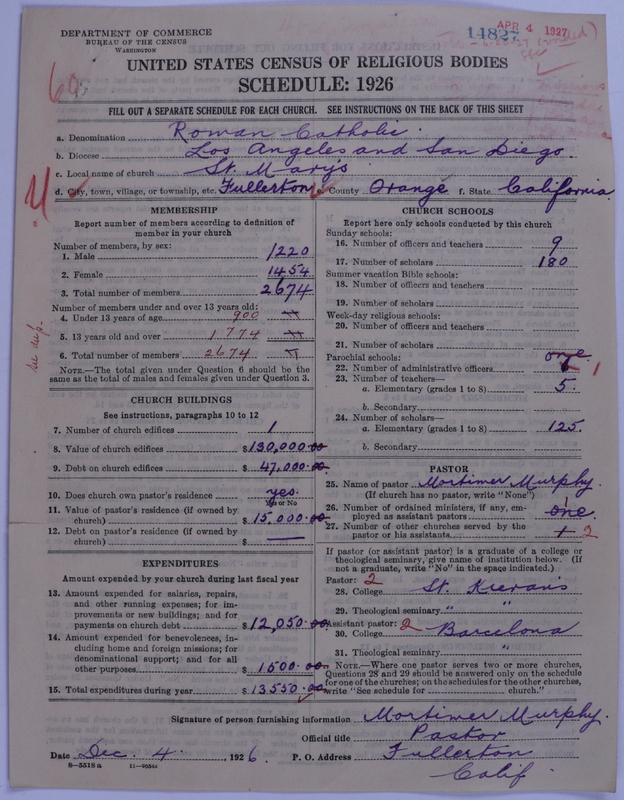 DEPARTMENT OF COMMERCE
BUREAU OF THE CENSUS
WASHINGTON
14827
APR 4 1927
UNITED STATES CENSUS OF RELIGIOUS BODIES
SCHEDULE: 1926
FILL OUT A SEPARATE SCHEDULE FOR EACH CHURCH. SEE INSTRUCTIONS ON THE BACK OF THIS SHEET
a. Denomination Roman Catholic.
b. Diocese Los Angeles and San Diego.
c. Local name of church St. Mary's
d. City, town, village, or township, etc. Fullerton e. County Orange f. State California
MEMBERSHIP
Report number of members according to definition of
member in your church
Number of members, by sex:
1. Male 1220
2. Female 1454
3. Total number of members 2674
Number of members under and over 13 years old:
4. Under 13 years of age 900
5. 13 years old and over 1774
6. Total number of members 2674
NOTE.—The total given under Question 6 should be
same as the total of males and females given under Question 3.
CHURCH BUILDINGS
See instructions, paragraphs 10 to 12
7. Number of church edifices 1
8. Value of church edifices $130,000.00
9. Debt on church edifices $47,000.00
10. Does church own pastor's residence yes.
Yes or No
11. Value of pastor's residence (if owned by
church) $15,000.00
12. Debt on pastor's residence (if owned by
church) $ —
EXPENDITURES
Amount expended by your church during last fiscal year
13. Amount expended for salaries, repairs,
and other running expenses; for im-
provements or new buildings; and for
payments on church debt $12,050.00
14. Amount expended for benevolences, in-
cluding home and foreign missions; for
denominational support; and for all
other purposes $1500.00
15. Total expenditures during year $13550.00
CHURCH SCHOOLS
Report here only schools conducted by this church
Sunday schools:
16. Number of officers and teachers 9
17. Number of scholars 180
Summer vacation Bible schools:
18. Number of officers and teachers
19. Number of scholars
Week-day religious schools:
20. Number of officers and teachers
21. Number of scholars
Parochial schools: one
22. Number of administrative officers 1
23. Number of teachers—
a. Elementary (grades 1 to 8) 5
b. Secondary
24. Number of scholars—
a. Elementary (grades 1 to 8) 125.
b. Secondary
PASTOR
25. Name of pastor Mortimer Murphy.
(If church has no pastor, write "None")
26. Number of ordained ministers, if any, em-
ployed as assistant pastors one 1
27. Number of other churches served by the
pastor or his assistants 1 2
If pastor (or assistant pastor) is a graduate of a college or
theological seminary, give name of institution below. (If
not a graduate, write "No" in the space indicated.)
Pastor: 2
28. College St. Kieran's
29. Theological seminary " "
Assistant pastor: 2
30. College Barcelona
31. Theological seminary "
NOTE.—Where one pastor serves two or more churches,
Questions 28 and 29 should be answered only on the schedule
for one of the churches; on the schedules for the other churches,
write "See schedule for church."
Signature of person furnishing information Mortimer Murphy.
Official title Pastor
Date Dec. 4, 1926. P. O. Address Fullerton
Calif.
8—5518 a